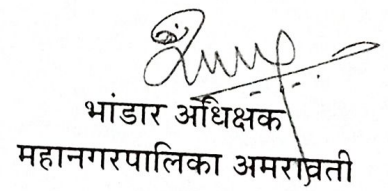 भांडार अधिक्षक
महानगरपालिका अमरावती